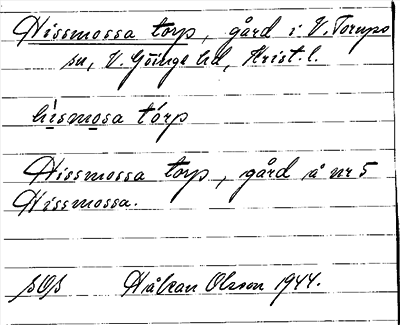 Hissmossa torp, gård i V. Torups
sn, V. Göinge hd, Krist. l.
hísmosa tórp
Hissmossa torp, gård å nr 5
Hissmossa.
sOs Håkan Olsson 1944.